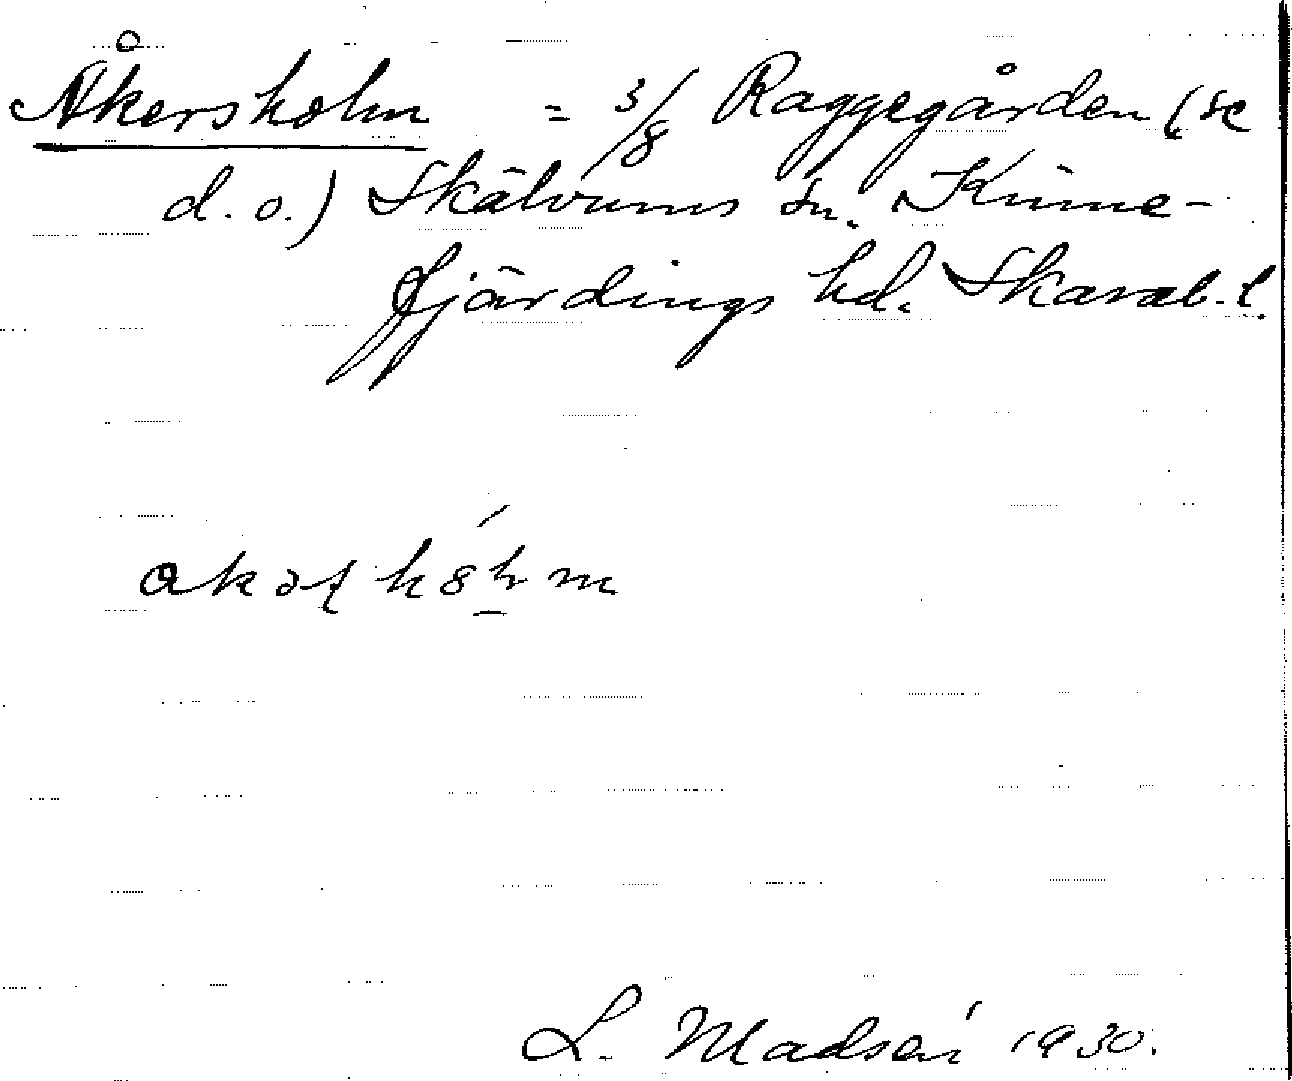 Åkersholm = 3/8 Raggegården (se
d.o.) Skälvums sn. Kinne-
fjärdings hd. Skarab. l.
L. Madsén 1930.